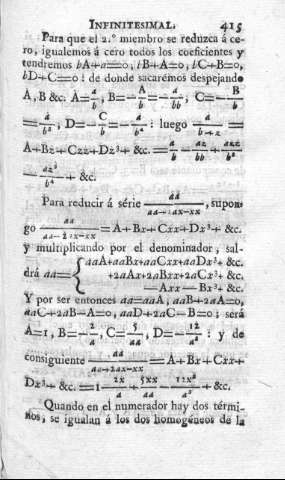 INFINITESIMAL. 415
Para que el 2.º miembro se reduzca á ce-
ro, igualemos á cero todos los coeficientes y
tendremos bA+a=0, bB+A=0, bC+B=0,
bD+C=0: de donde sacarémos despejando
A, B &c. A=a/b, B=-A/b=-a/bb, C=-B/b
=a/b³, D=-C/b=-a/b⁴: luego a/(b+z) =
A+Bz+Czz+Dz³+ &c. =a/b-az/bb+azz/b³
-az³/b⁴+ &c.
Para reducir á série aa/(aa+2ax-xx), supon-
go aa/(aa+2ax-xx)=A+Bx+Cxx+Dx³+ &c.
y multiplicando por el denominador, sal-
drá aa={ aaA+aaBx+aaCxx+aaDx³+ &c.
+2aAx+2aBxx+2aCx³+ &c.
-Axx-Bx³+ &c.
Y por ser entonces aa=aaA, aaB+2aA=0,
aaC+2aB-A=0, aaD+2aC-B=0; será
A=1, B=-2/a, C=5/aa, D=-12/a³: y de
consiguiente aa/(aa+2ax-xx)=A+Bx+Cxx+
Dx³+ &c.=1-2x/a+5xx/aa-12x³/a³+ &c.
Quando en el numerador hay dos térmi-
nos, se igualan á los dos homogéneos de la